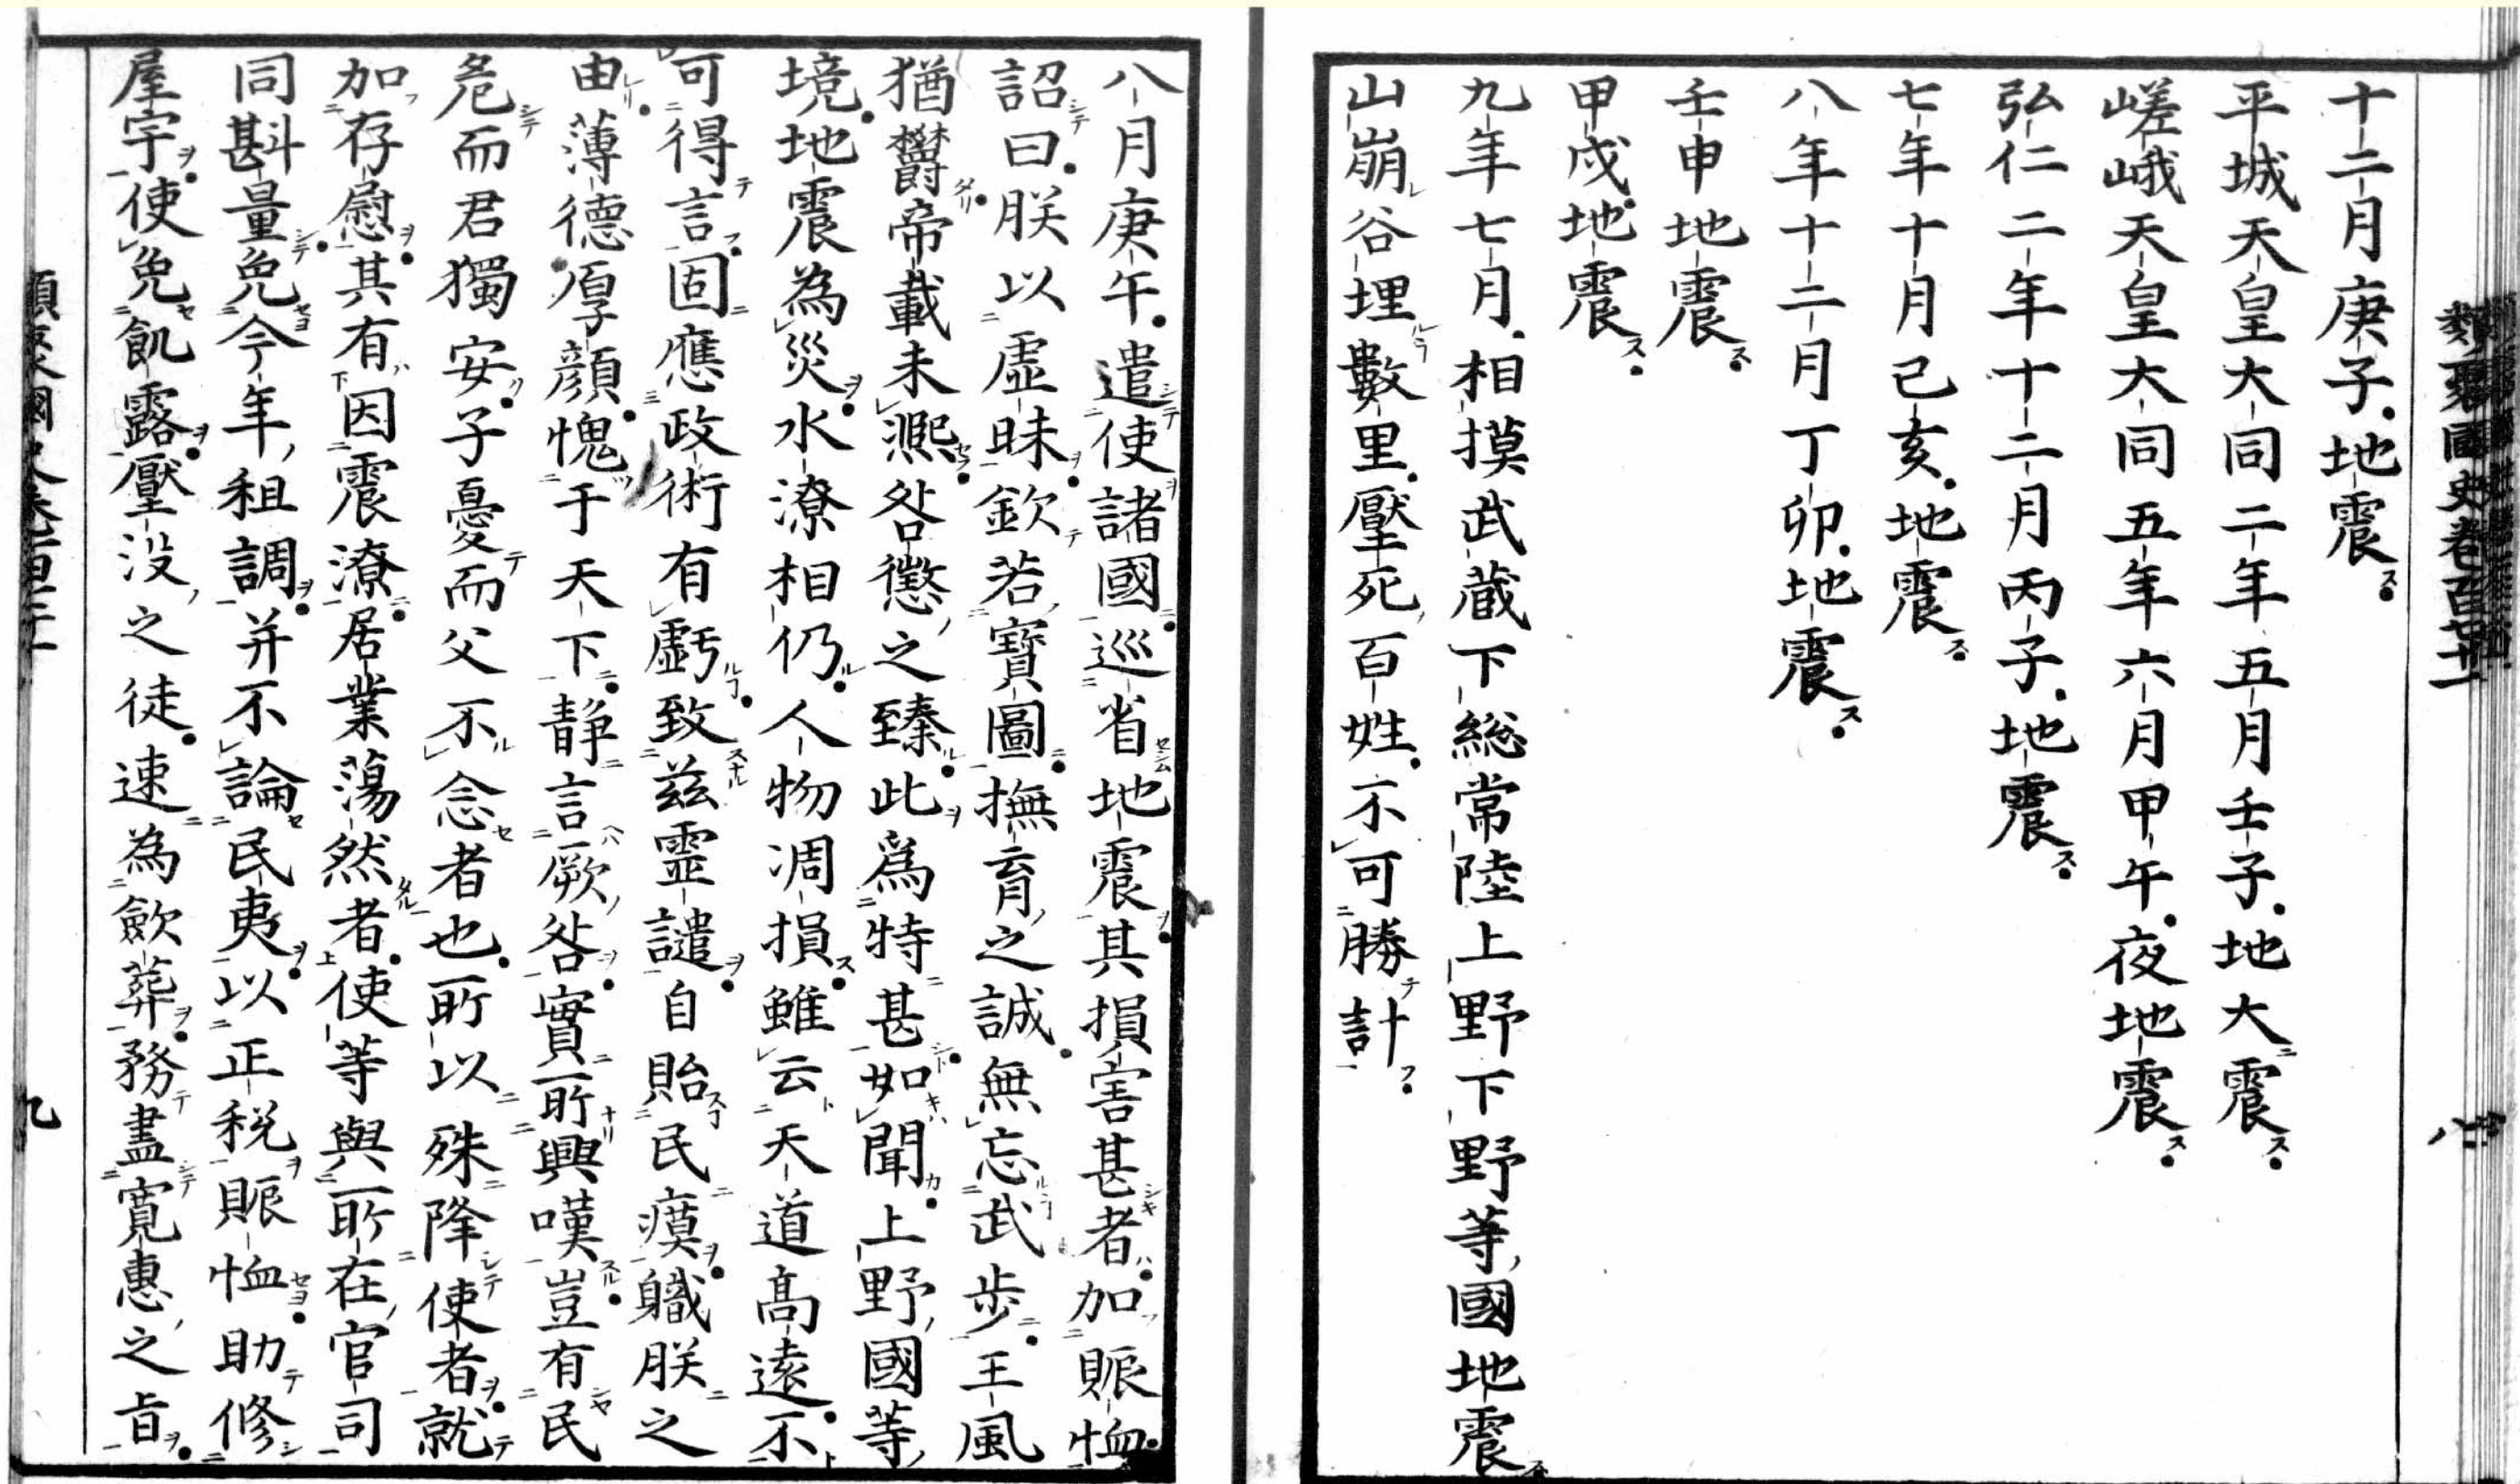 十二月庚子地震
平城天皇大同二年五月壬子地大震
嵯峨天皇大同五年六月甲午夜地震
弘仁二年十二月丙子地震
七年十月己亥地震
八年十二月丁卯地震
壬申地震
甲戌地震
九年七月相摸武蔵下総常陸上野下野等國地震
山崩谷埋數里壓死百姓不可勝計
八月庚午遣使諸國巡省地震其損害甚者加賑恤
詔曰朕以虛昧欽若寶圖撫育之誠無忘武步王風
猶欝帝載未凞咎懲之臻此爲特甚如聞上野國等
境地震為災水潦相仍人物凋損雖云天道高遠不
可得言固應政術有虧致茲靈譴自貽民瘼職朕之
由薄德厚顔愧于天下静言厥咎實所興嘆豈有民
危而君獨安子憂而父不念者也所以殊降使者就
加存慰其有因震潦居業蕩然者使等與所在官司
同斟量免今年租調并不論民夷以正税賑恤助修
屋宇使免飢露壓没之徒速為歛葬務盡寛惠之旨
類聚國史卷百七十一
八
九